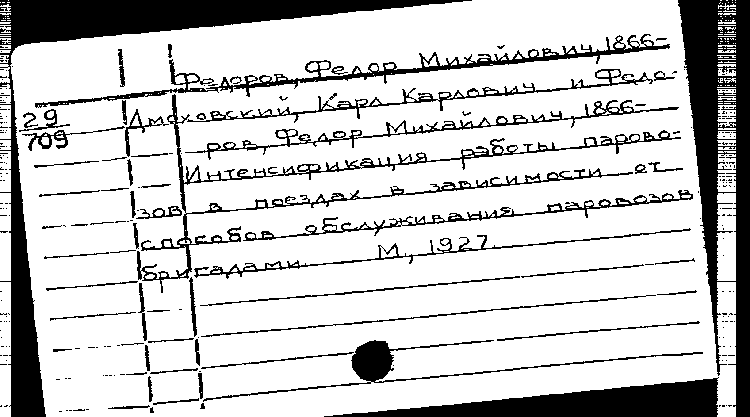 Федоров, Федор Михайлович, 1866-
29
709
Дмоховский, Карл Карлович и Федо-
ров, Федор Михайлович, 1866-
Интенсификация работы парово-
зов в поездах в зависимости от
способов обслуживания паровозов
бригадами. М., 1927.